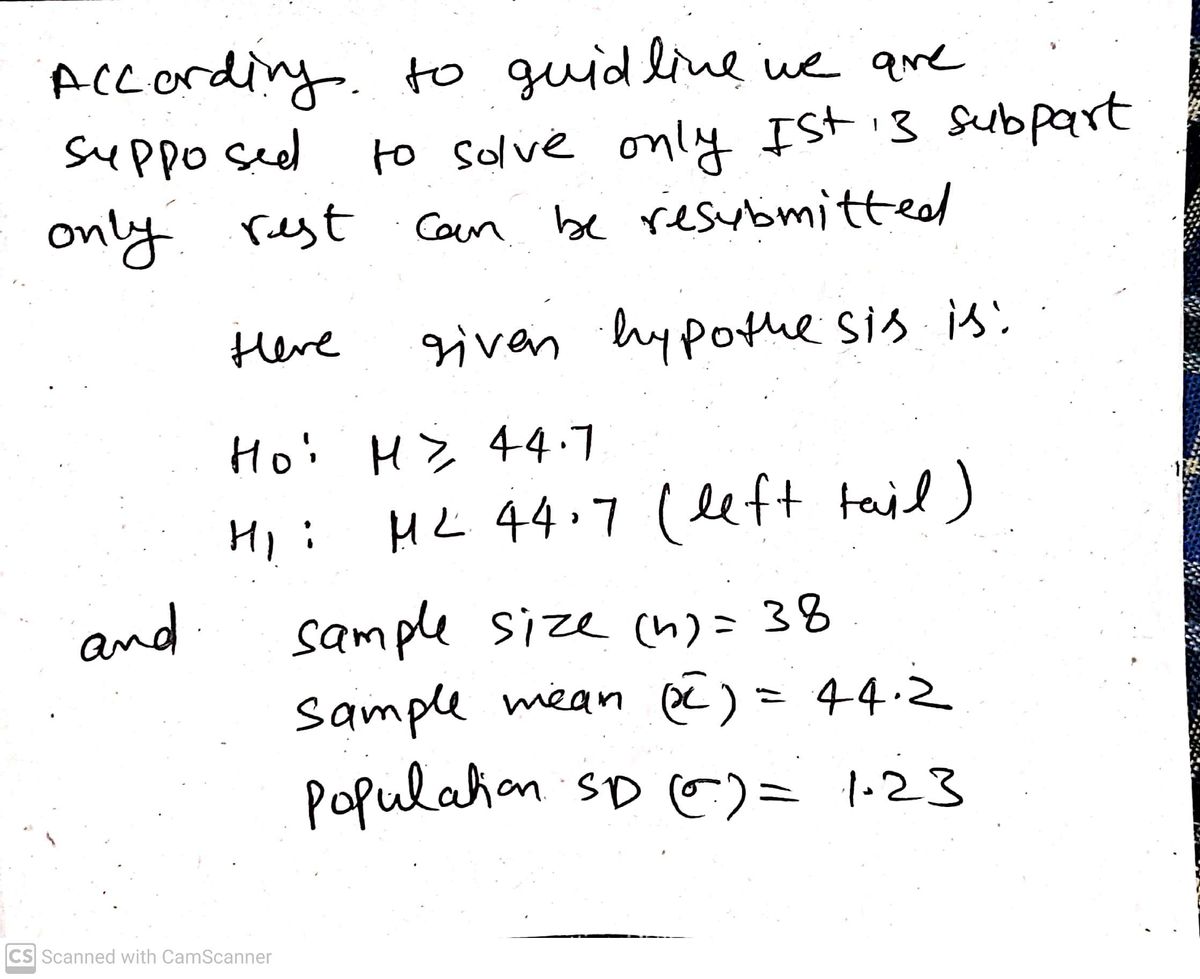 According to guidline we are
supposed to solve only Ist 3 subpart
only rest can be resubmitted
Here given hypothesis is:
H0: μ ≥ 44.7
H1: μ < 44.7 (left tail)
and sample size (n) = 38
sample mean (x̄) = 44.2
population SD (σ) = 1.23
CS Scanned with CamScanner